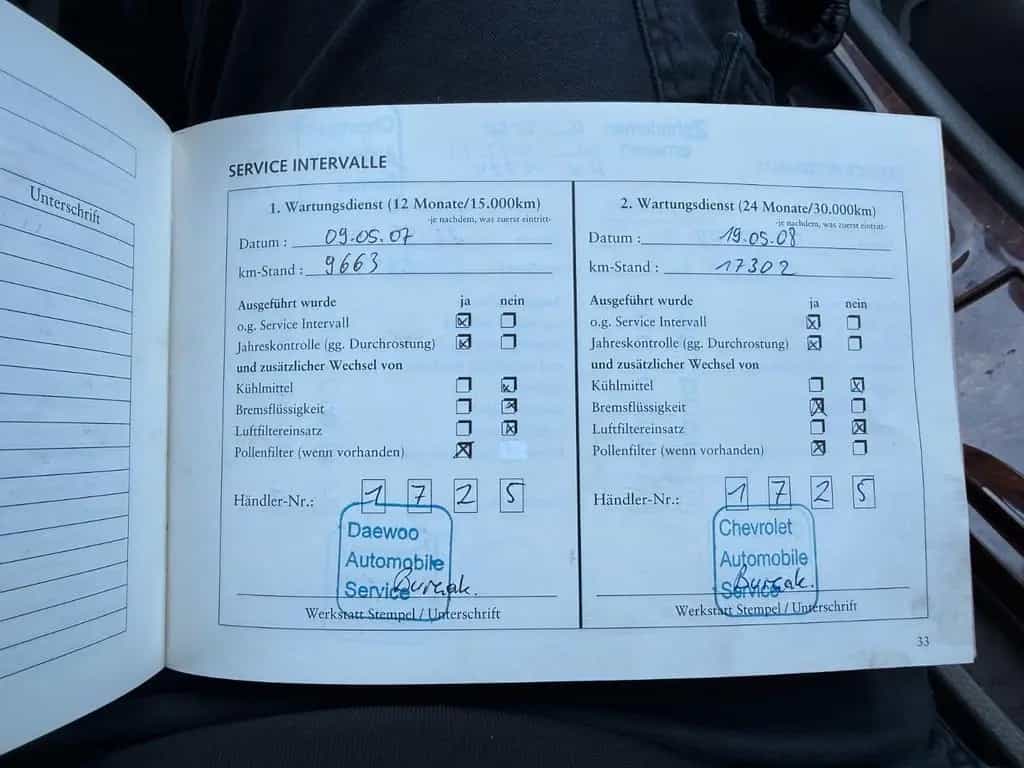 Unterschrift
SERVICE INTERVALLE
1. Wartungsdienst (12 Monate/15.000km)
-je nachdem, was zuerst eintritt-
Datum : 09.05.07
km-Stand : 9663
Ausgeführt wurde ja nein
o.g. Service Intervall
Jahreskontrolle (gg. Durchrostung)
und zusätzlicher Wechsel von
Kühlmittel
Bremsflüssigkeit
Luftfiltereinsatz
Pollenfilter (wenn vorhanden)
Händler-Nr.: 1 7 2 5
Daewoo
Automobile
Service
Werkstatt Stempel / Unterschrift
2. Wartungsdienst (24 Monate/30.000km)
-je nachdem, was zuerst eintritt-
Datum : 19.05.08
km-Stand : 17302
Ausgeführt wurde ja nein
o.g. Service Intervall
Jahreskontrolle (gg. Durchrostung)
und zusätzlicher Wechsel von
Kühlmittel
Bremsflüssigkeit
Luftfiltereinsatz
Pollenfilter (wenn vorhanden)
Händler-Nr.: 1 7 2 5
Chevrolet
Automobile
Service
Werkstatt Stempel / Unterschrift
33